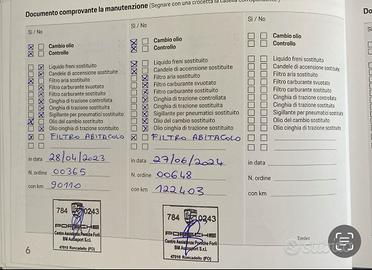 Documento comprovante la manutenzione (Segnare con una crocetta la casella
Sì / No
Cambio olio
Controllo
Liquido freni sostituito
Candele di accensione sostituite
Filtro aria sostituito
Filtro carburante svuotato
Filtro carburante sostituito
Cinghia di trazione controllata
Cinghia di trazione sostituita
Sigillante per pneumatici sostituito
Olio del cambio sostituito
Olio cinghia di trazione sostituito
FILTRO ABITACOLO
in data 28/04/2023
N. ordine 00365
con km 90110
784 90243
PORSCHE
Centro Assistenza Porsche Forlì
BM Autosport S.r.l.
47010 Roncadello (FO)
6
Sì / No
Cambio olio
Controllo
Liquido freni sostituito
Candele di accensione sostituite
Filtro aria sostituito
Filtro carburante svuotato
Filtro carburante sostituito
Cinghia di trazione controllata
Cinghia di trazione sostituita
Sigillante per pneumatici sostituito
Olio del cambio sostituito
Olio cinghia di trazione sostituito
FILTRO ABITACOLO
in data 27/06/2024
N. ordine 00648
con km 122403
784 90243
PORSCHE
Centro Assistenza Porsche Forlì
BM Autosport S.r.l.
47010 Roncadello (FO)
Sì / No
Cambio olio
Controllo
Liquido freni sostituito
Candele di accensione sostituite
Filtro aria sostituito
Filtro carburante svuotato
Filtro carburante sostituito
Cinghia di trazione controllata
Cinghia di trazione sostituita
Sigillante per pneumatici sostituito
Olio del cambio sostituito
Olio cinghia di trazione sostituito
in data
N. ordine
con km
Timbro
Do
Sì